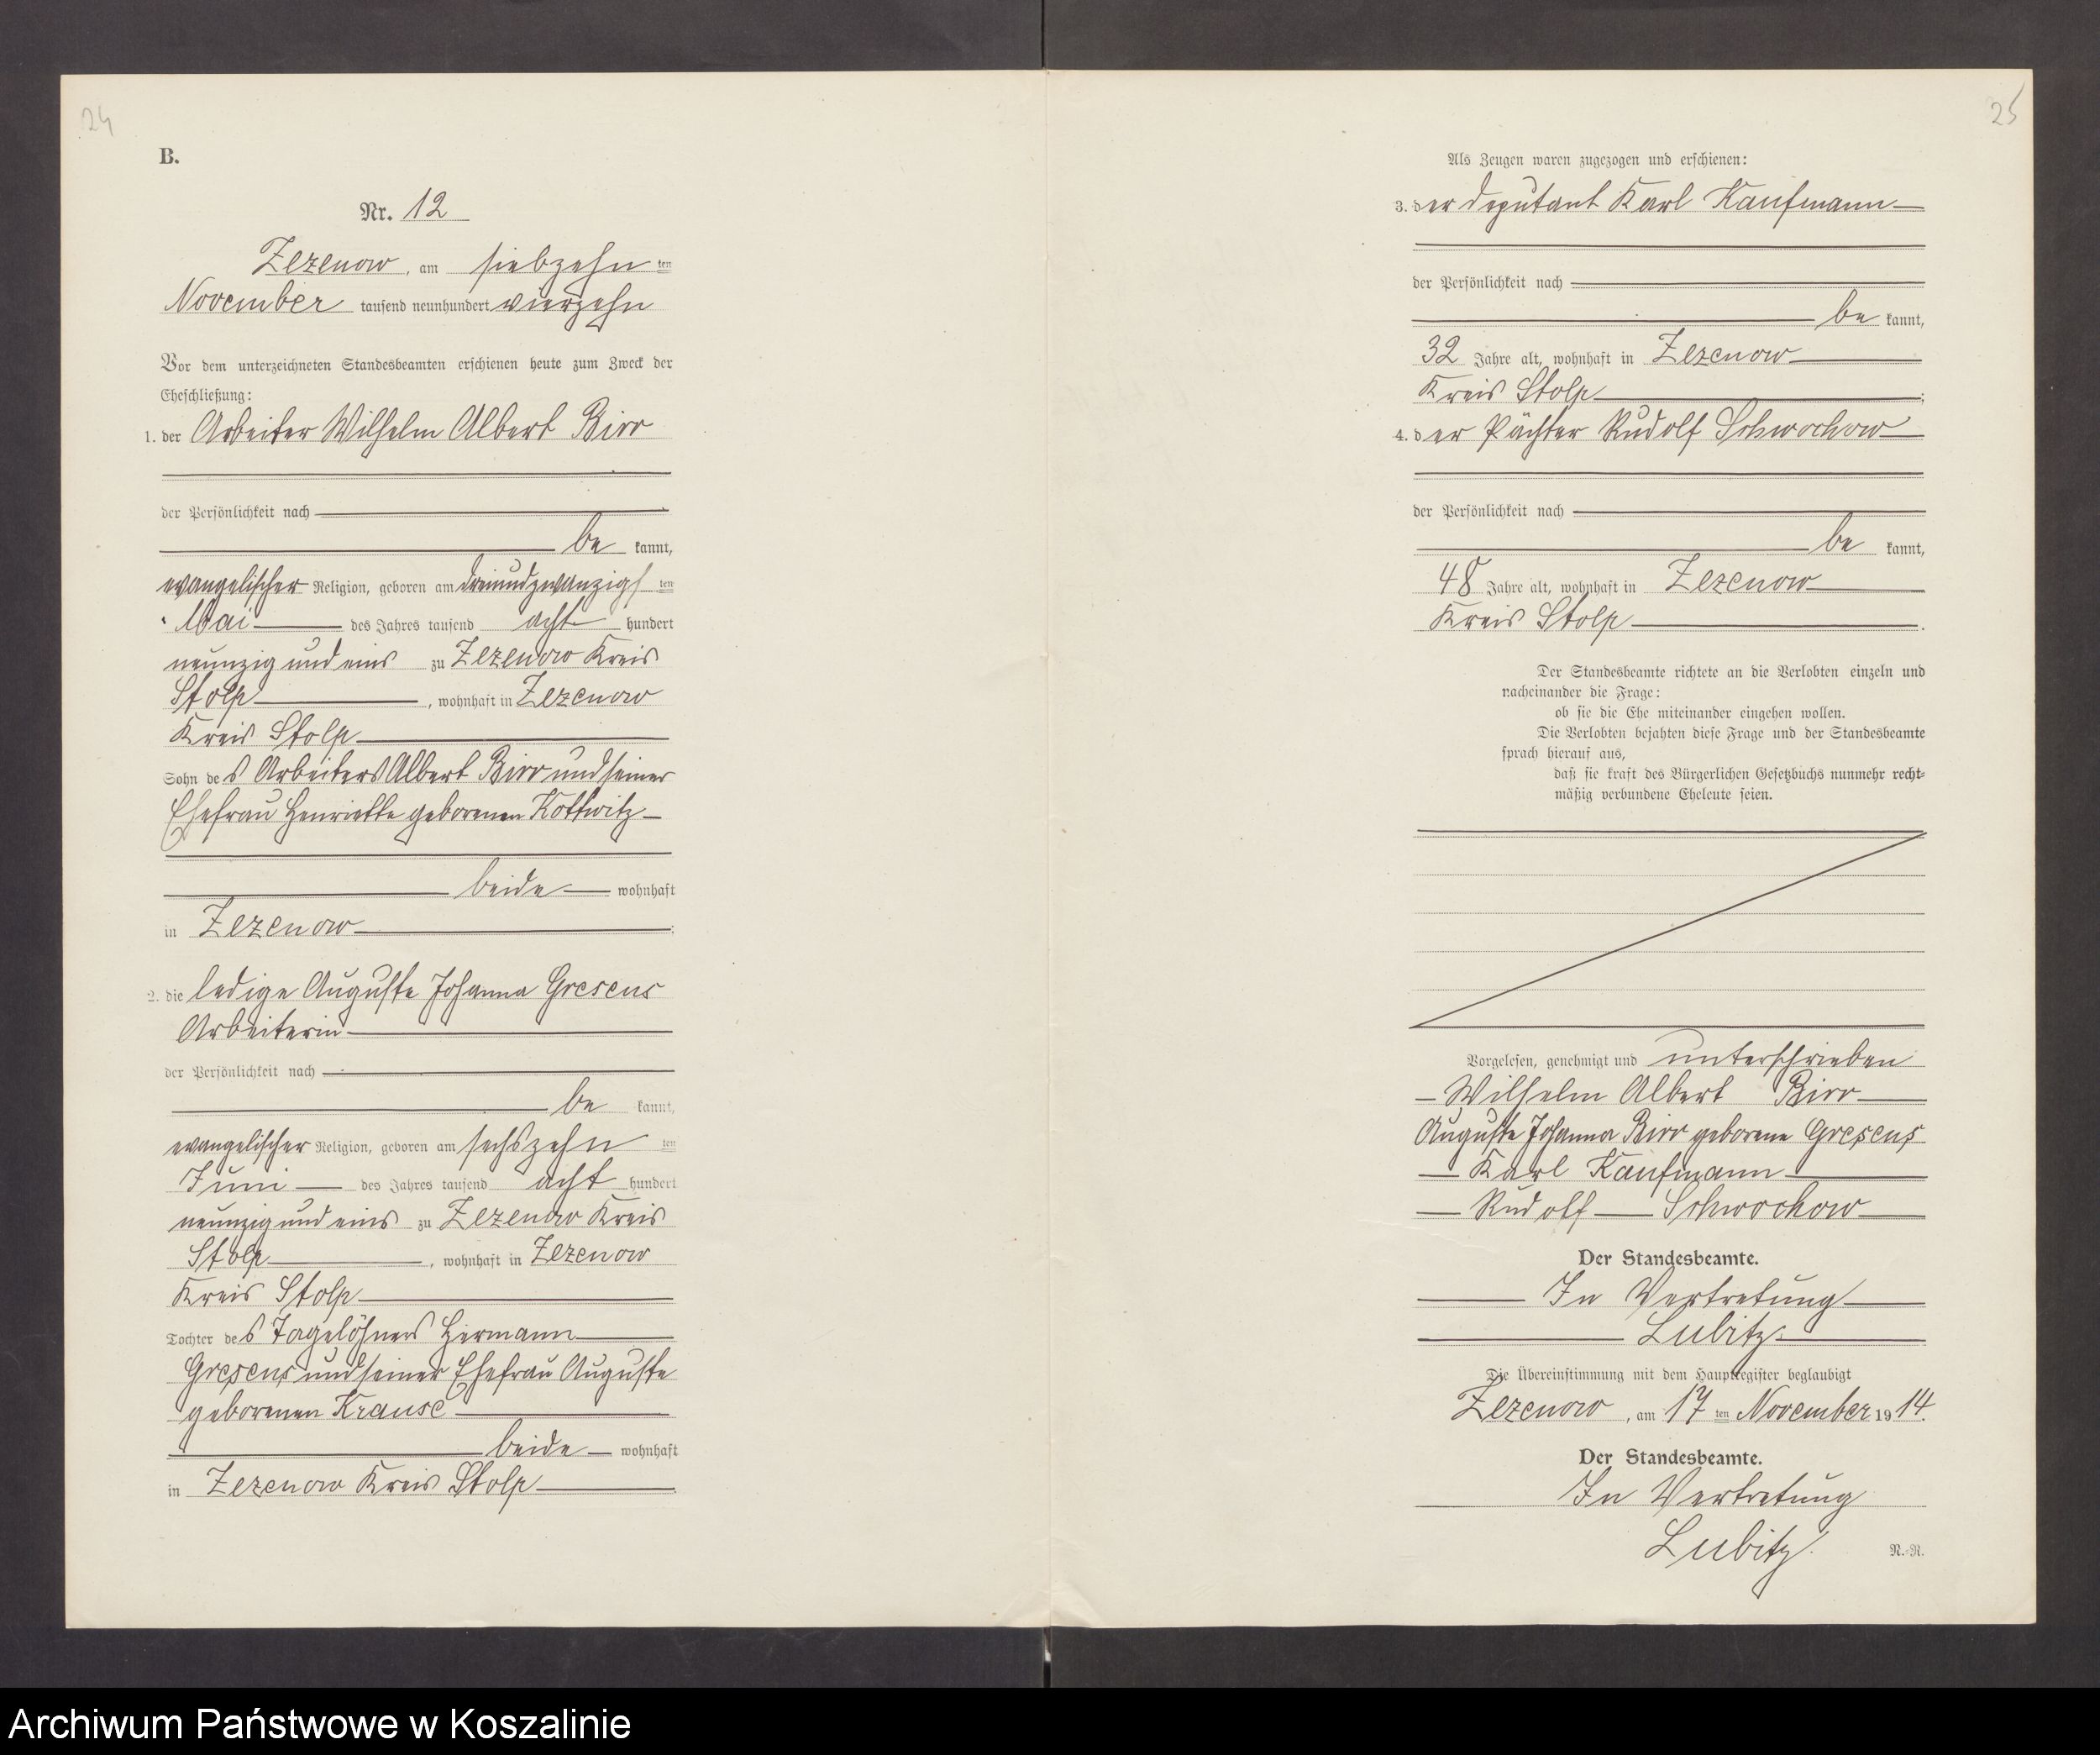 24
B.
Nr. 12
Zezenow, am siebzehn ten
November tausend neunhundert vierzehn
Vor dem unterzeichneten Standesbeamten erschienen heute zum Zweck der
Eheschließung:
1. der Arbeiter Wilhelm Albert Birr
der Persönlichkeit nach
be kannt,
evangelischer Religion, geboren am dreiundzwanzigs ten
Mai des Jahres tausend acht hundert
neunzig und eins zu Zezenow Kreis
Stolp, wohnhaft in Zezenow
Kreis Stolp
Sohn des Arbeiters Albert Birr und seiner
Ehefrau Henriette geborenen Kottwitz
beide wohnhaft
in Zezenow;
2. die ledige Auguste Johanna Gresens
Arbeiterin
der Persönlichkeit nach
be kannt,
evangelischer Religion, geboren am sechszehn ten
Juni des Jahres tausend acht hundert
neunzig und eins zu Zezenow Kreis
Stolp, wohnhaft in Zezenow
Kreis Stolp
Tochter des Tagelöhners Hermann
Gresens und seiner Ehefrau Auguste
geborenen Krause
beide wohnhaft
in Zezenow Kreis Stolp.
25
Als Zeugen waren zugezogen und erschienen:
3. der Deputant Karl Kaufmann
der Persönlichkeit nach
be kannt,
32 Jahre alt, wohnhaft in Zezenow
Kreis Stolp;
4. der Pächter Rudolf Schwochow
der Persönlichkeit nach
be kannt,
48 Jahre alt, wohnhaft in Zezenow
Kreis Stolp.
Der Standesbeamte richtete an die Verlobten einzeln und
nacheinander die Frage:
ob sie die Ehe miteinander eingehen wollen.
Die Verlobten bejahten diese Frage und der Standesbeamte
sprach hierauf aus,
daß sie kraft des Bürgerlichen Gesetzbuchs nunmehr recht-
mäßig verbundene Eheleute seien.
Vorgelesen, genehmigt und unterschrieben
Wilhelm Albert Birr
Auguste Johanna Birr geborene Gresens
Karl Kaufmann
Rudolf Schwochow
Der Standesbeamte.
In Vertretung
Lubitz.
Die Übereinstimmung mit dem Hauptregister beglaubigt
Zezenow, am 17 ten November 1914.
Der Standesbeamte.
In Vertretung
Lubitz.
N.-R.
Archiwum Państwowe w Koszalinie